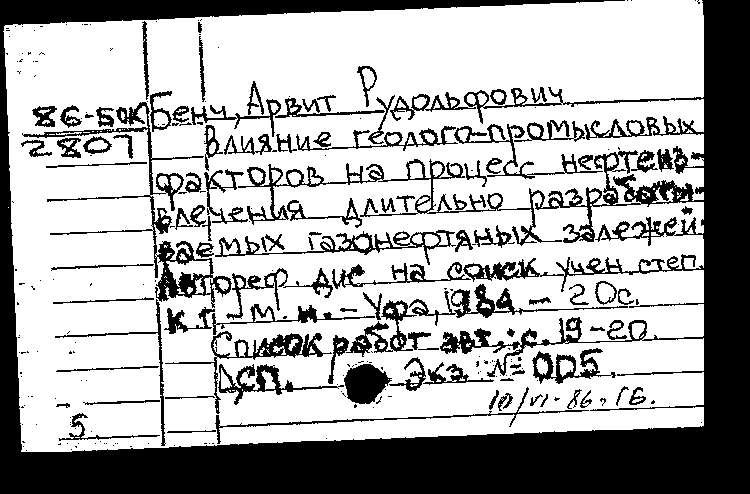 86-5ДК
2807
Бенч, Арвит Рудольфович
Влияние геолого-промысловых
факторов на процесс нефтеиз-
влечения длительно разрабаты-
ваемых газонефтяных залежей.
Автореф. дис. на соиск. учен. степ.
к.г.-м.н. - Уфа, 1984. - 20с.
Список работ авт.: с. 19-20.
ДСП. Экз. № 005.
10/VI-86. ГБ.
5